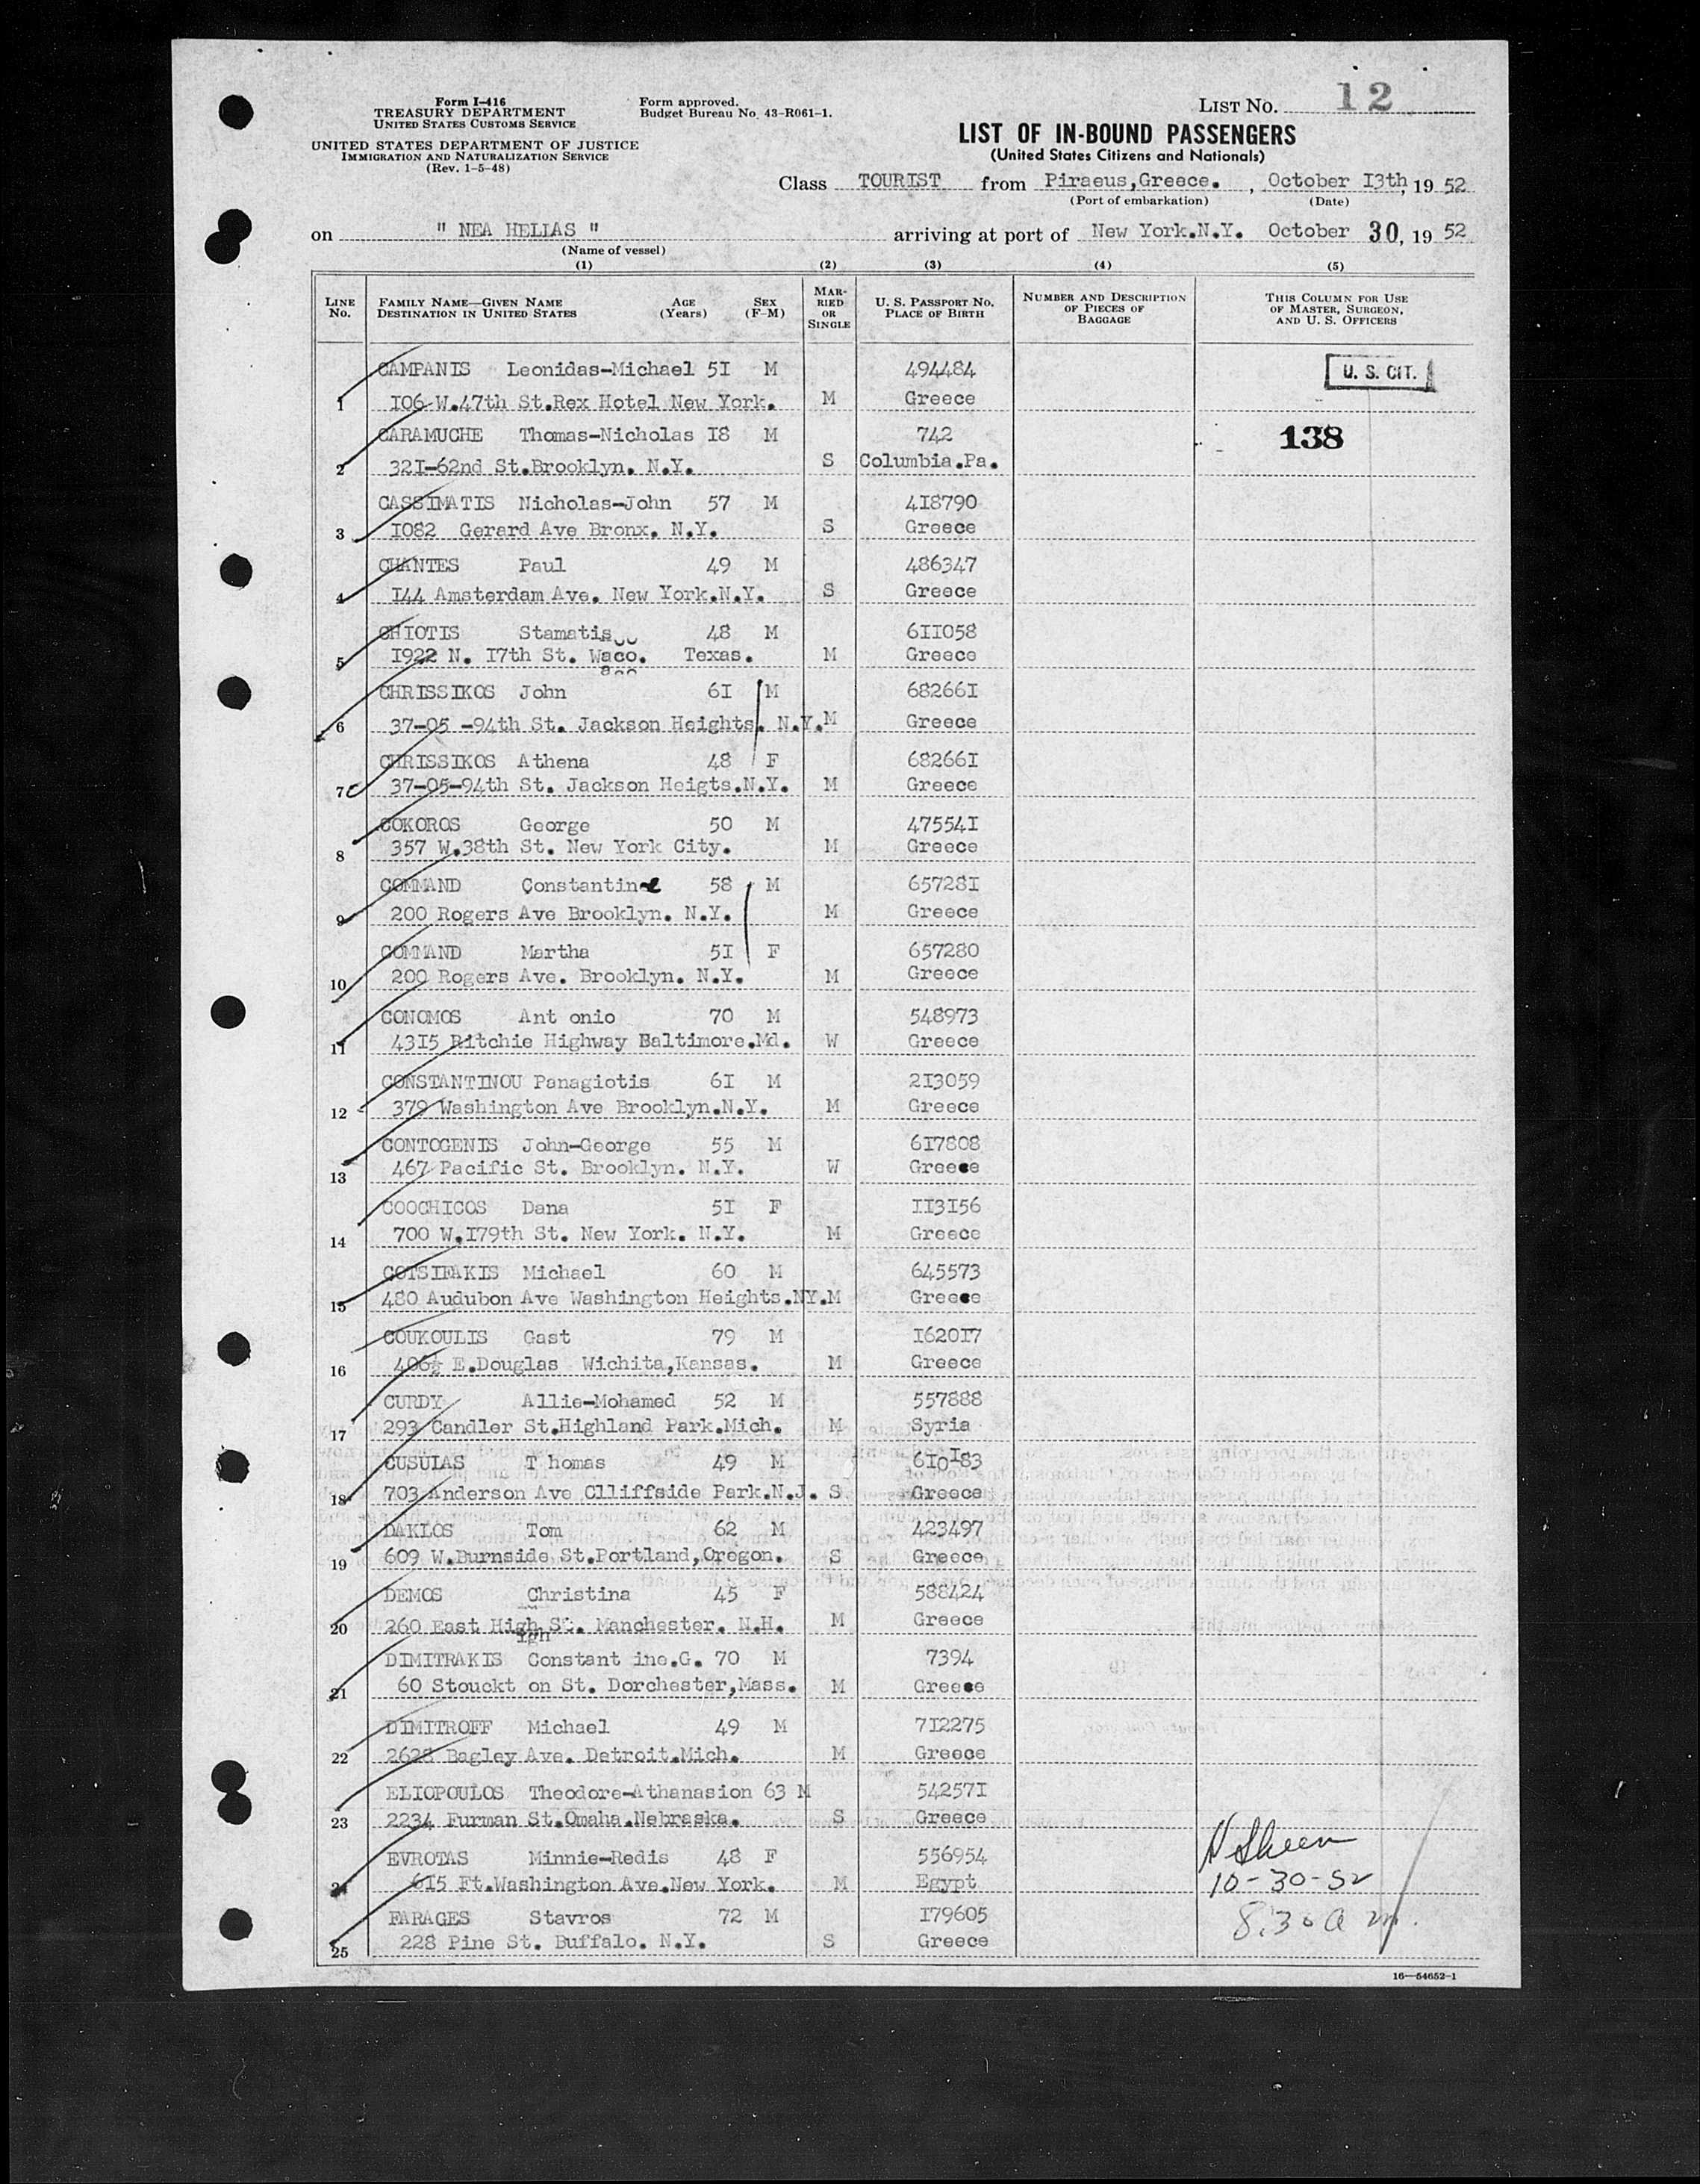 Form I-416
TREASURY DEPARTMENT
UNITED STATES CUSTOMS SERVICE
UNITED STATES DEPARTMENT OF JUSTICE
IMMIGRATION AND NATURALIZATION SERVICE
(Rev. 1-5-48)
Form approved.
Budget Bureau No. 43-R061-1.
LIST NO. 12
LIST OF IN-BOUND PASSENGERS
(United States Citizens and Nationals)
Class TOURIST from Piraeus,Greece. , October I3th, 19 52
(Port of embarkation) (Date)
on " NEA HELIAS " arriving at port of New York.N.Y. October 30, 19 52
(Name of vessel)
(1) (2) (3) (4) (5)
LINE NO. FAMILY NAME—GIVEN NAME DESTINATION IN UNITED STATES AGE (Years) SEX (F-M) MARRIED OR SINGLE U. S. PASSPORT NO. PLACE OF BIRTH NUMBER AND DESCRIPTION OF PIECES OF BAGGAGE THIS COLUMN FOR USE OF MASTER, SURGEON, AND U. S. OFFICERS
CAMPANIS Leonidas-Michael 5I M 494484 U. S. CIT.
1 I06 W.47th St.Rex Hotel New York. M Greece
CARAMUCHE Thomas-Nicholas I8 M 742 138
2 32I-62nd St.Brooklyn. N.Y. S Columbia.Pa.
CASSIMATIS Nicholas-John 57 M 4I8790
3 I082 Gerard Ave Bronx. N.Y. S Greece
CHANTES Paul 49 M 486347
4 I44 Amsterdam Ave. New York.N.Y. S Greece
CHIOTIS Stamatis 48 M 6II058
5 I922 N. I7th St. Waco. Texas. M Greece
CHRISSIKOS John 6I M 68266I
6 37-05 -94th St. Jackson Heights. N.Y. M Greece
CHRISSIKOS Athena 48 F 68266I
7 37-05-94th St. Jackson Heigts.N.Y. M Greece
COKOROS George 50 M 47554I
8 357 W.38th St. New York City. M Greece
COMMAND Constantine 58 M 65728I
9 200 Rogers Ave Brooklyn. N.Y. M Greece
COMMAND Martha 5I F 657280
10 200 Rogers Ave. Brooklyn. N.Y. M Greece
CONOMOS Ant onio 70 M 548973
11 43I5 Ritchie Highway Baltimore.Md. W Greece
CONSTANTINOU Panagiotis 6I M 2I3059
12 379 Washington Ave Brooklyn.N.Y. M Greece
CONTOGENIS John-George 55 M 6I7808
13 467 Pacific St. Brooklyn. N.Y. W Greece
COOCHICOS Dana 5I F II3I56
14 700 W.I79th St. New York. N.Y. M Greece
COTSIFAKIS Michael 60 M 645573
15 480 Audubon Ave Washington Heights.NY. M Greece
COUKOULIS Gast 79 M I620I7
16 406½ E.Douglas Wichita,Kansas. M Greece
CURDY Allie-Mohamed 52 M 557888
17 293 Candler St.Highland Park.Mich. M Syria
CUSULAS T homas 49 M 610I83
18 703 Anderson Ave Clliffside Park.N.J. S Greece
DAKLOS Tom 62 M 423497
19 609 W.Burnside St.Portland,Oregon. S Greece
DEMOS Christina 45 F 588424
20 260 East High St. Manchester. N.H. M Greece
DIMITRAKIS Constant ine.G. 70 M 7394
21 60 Stouckt on St. Dorchester,Mass. M Greece
DIMITROFF Michael 49 M 7I2275
22 2628 Bagley Ave. Detroit.Mich. M Greece
ELIOPOULOS Theodore-Athanasion 63 M 54257I
23 2234 Furman St.Omaha.Nebraska. S Greece
EVROTAS Minnie-Redis 48 F 556954
24 6I5 Ft.Washington Ave.New York. M Egypt 10-30-52
FARAGES Stavros 72 M I79605 8:30 a m.
25 228 Pine St. Buffalo. N.Y. S Greece
16—54652-1